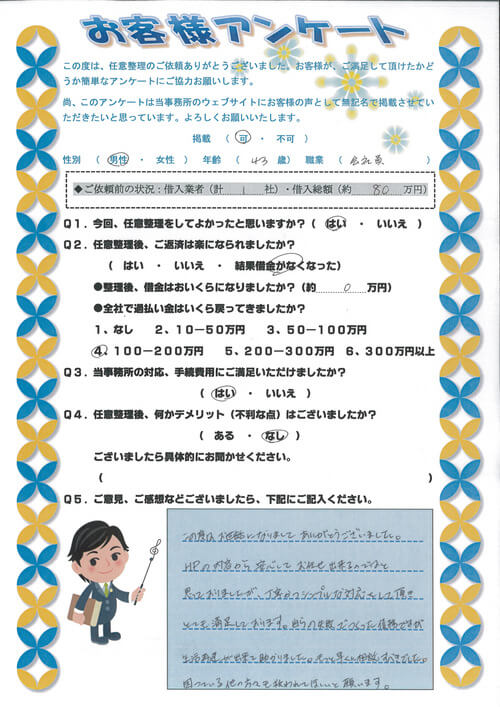 お客様アンケート
この度は、任意整理のご依頼ありがとうございました。お客様が、ご満足して頂けたかど
うか簡単なアンケートにご協力お願いします。
尚、このアンケートは当事務所のウェブサイトにお客様の声として無記名で掲載させてい
ただきたいと思っています。よろしくお願いいたします。
掲載 （ 可 ・ 不可 ）
性別 （ 男性 ・ 女性 ） 年齢 （ 43 歳） 職業 （ 会社員 ）
◆ご依頼前の状況：借入業者（計 1 社）・借入総額（約 80 万円）
Q1．今回、任意整理をしてよかったと思いますか？（ はい ・ いいえ ）
Q2．任意整理後、ご返済は楽になられましたか？
（ はい ・ いいえ ・ 結果借金がなくなった）
●整理後、借金はおいくらになりましたか？（約 0 万円）
●全社で過払い金はいくら戻ってきましたか？
1、なし 2、10－50万円 3、50－100万円
4、100－200万円 5、200－300万円 6、300万円以上
Q3．当事務所の対応、手続費用にご満足いただけましたか？
（ はい ・ いいえ ）
Q4．任意整理後、何かデメリット（不利な点）はございましたか？
（ ある ・ なし ）
ございましたら具体的にお聞かせください。
（ ）
Q5．ご意見、ご感想などございましたら、下記にご記入ください。
この度はお世話になりまして ありがとうございました。
HPの内容から 安心して お任せ出来るのではと
思っておりましたが、丁寧かつシンプルな対応をして頂き
とても満足しております。自らの失敗でつくった債務ですが
生活改善が出来て助かりました。もっと早くに相談すべきでした。
困っている他の方々も救われてほしいと願います。